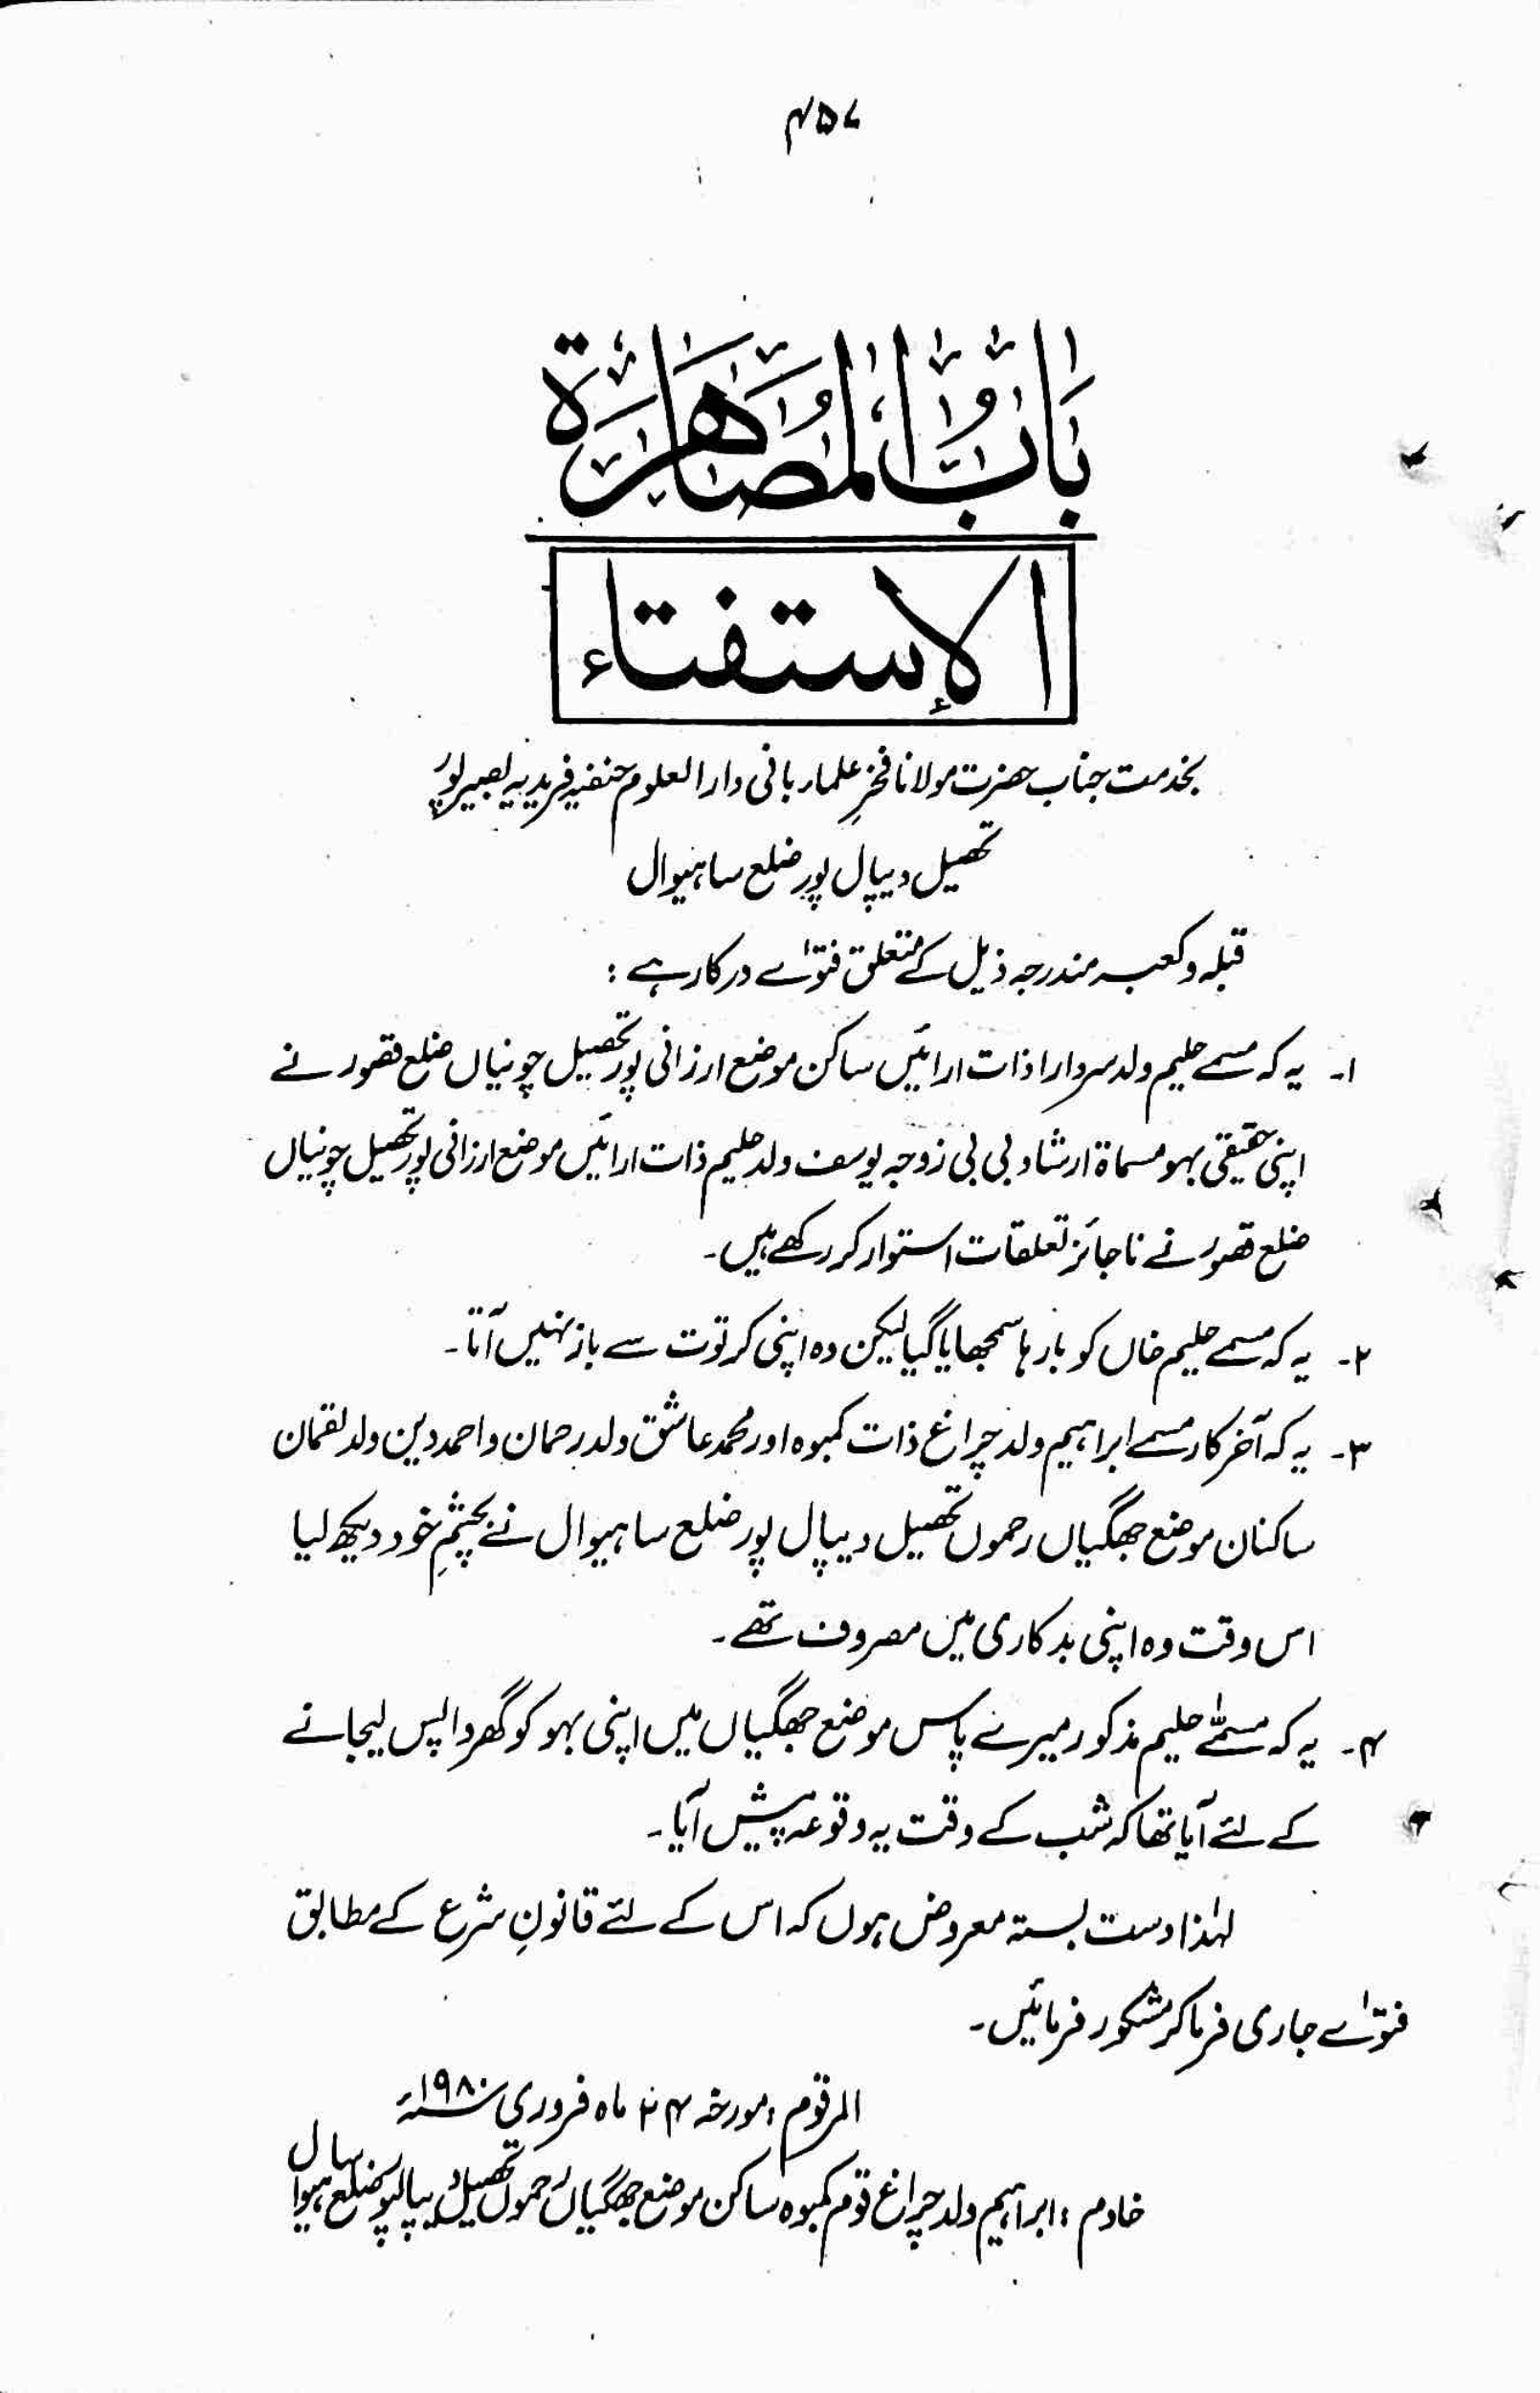 ۴۵۷
بَابُ الْمُصَاهَرَة
الإستفتاء
بخدمت جناب حضرت مولانا فخرِ علماء بانی دارالعلوم حنفیہ فریدیہ بصیرپور
تحصیل دیپال پور ضلع ساہیوال
قبلہ و کعبہ مندرجہ ذیل کے متعلق فتوٰے درکار ہے :
۱۔ یہ کہ مسمے حلیم ولد سردارا ذات ارائیں ساکن موضع ارزانی پور تحصیل چونیاں ضلع قصور نے
اپنی حقیقی بہو مسماۃ ارشاد بی بی زوجہ یوسف ولد حلیم ذات ارائیں موضع ارزانی پور تحصیل چونیاں
ضلع قصور نے ناجائز تعلقات استوار کر رکھے ہیں۔
۲۔ یہ کہ مسمے حلیم خاں کو بارہا سمجھایا گیا لیکن وہ اپنی کرتوت سے باز نہیں آتا۔
۳۔ یہ کہ آخر کار مسمے ابراہیم ولد چراغ ذات کمبوہ اور محمد عاشق ولد رحمان و احمد دین ولد لقمان
ساکنان موضع جھگیاں رحموں تحصیل دیپال پور ضلع ساہیوال نے بچشمِ خود دیکھ لیا
اس وقت وہ اپنی بدکاری میں مصروف تھے۔
۴۔ یہ کہ مسمّٰے حلیم مذکور میرے پاس موضع جھگیاں میں اپنی بہو کو گھر واپس لیجانے
کے لئے آیا تھا کہ شب کے وقت یہ وقوعہ پیش آیا۔
لہٰذا دست بستہ معروض ہوں کہ اس کے لئے قانونِ شرع کے مطابق
فتوٰے جاری فرما کر مشکور فرمائیں۔
المرقوم : مورخہ ۲۴ ماہ فروری ۱۹۸۰ء
خادم : ابراہیم ولد چراغ قوم کمبوہ ساکن موضع جھگیاں رحموں تحصیل دیپالپور ضلع ساہیوال